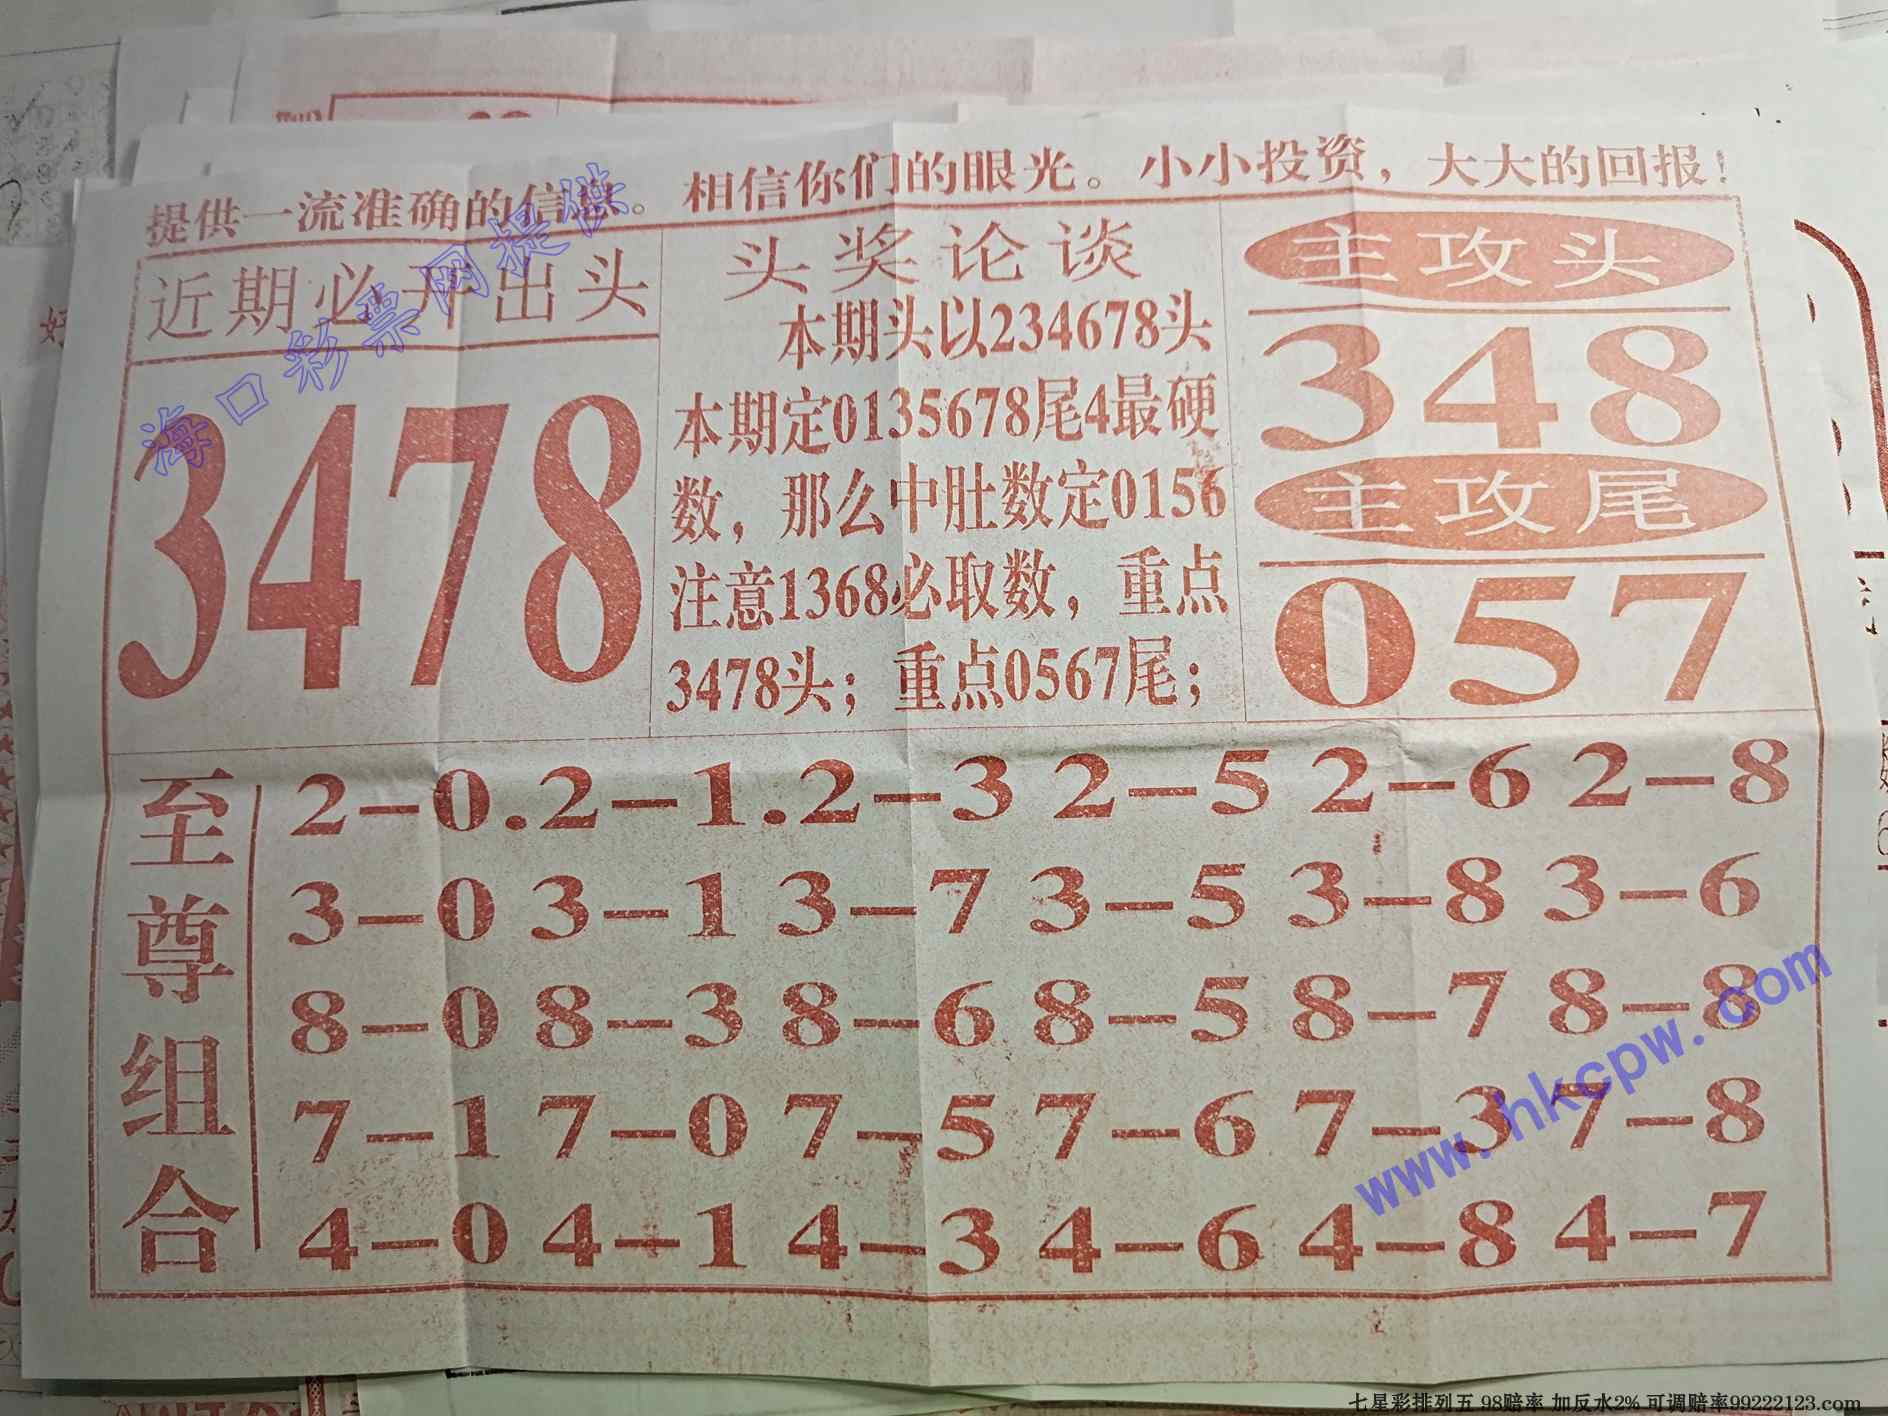 提供一流准确的信息。相信你们的眼光。小小投资，大大的回报！
近期必开出头
3478
头奖论谈
本期头以234678头
本期定0135678尾4最硬
数，那么中肚数定0156
注意1368必取数，重点
3478头；重点0567尾；
主攻头
348
主攻尾
057
至尊组合
2-0.2-1.2-3 2-5 2-6 2-8
3-0 3-1 3-7 3-5 3-8 3-6
8-0 8-3 8-6 8-5 8-7 8-8
7-1 7-0 7-5 7-6 7-3 7-8
4-0 4-1 4-3 4-6 4-8 4-7
海口彩票网提供
www.hkcpw.com
七星彩排列五 98赔率 加反水2% 可调赔率99222123.com